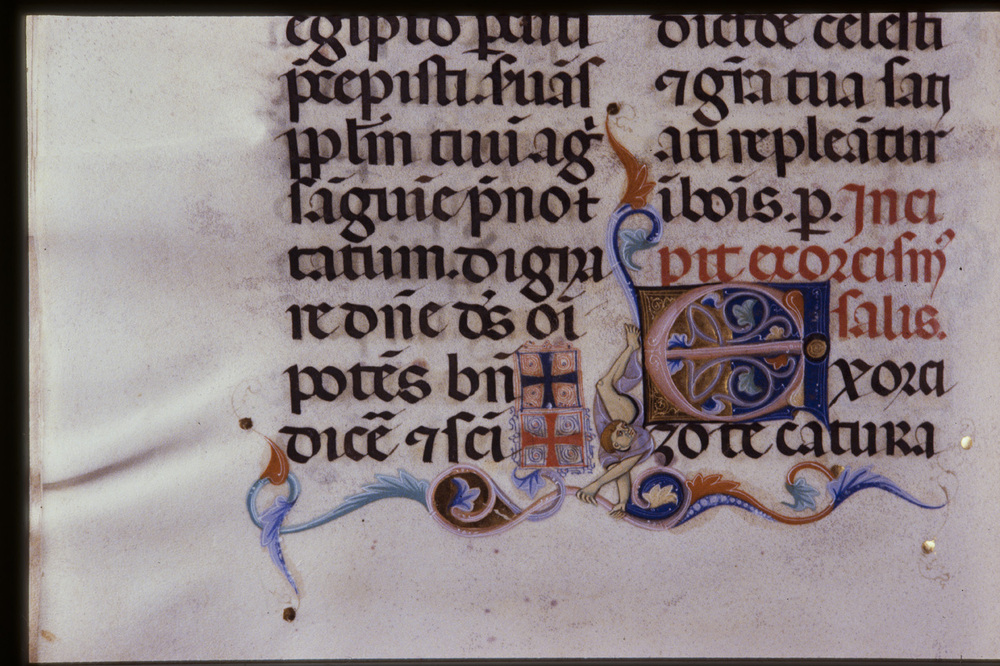 egipto pati
p̄cepisti. suas̄
ppl̄m tuū. ag̀
sāguīe p̄not
tatum. digna
re dn̄e ds̄ oī
potēs bn̄
dicē ⁊ sc̄i
dictōe celesti
⁊ gr̄a tua sati
ati repleātur
ībois. p. Inci
pit exorcism̄
salis.
Exorci
zo te catura